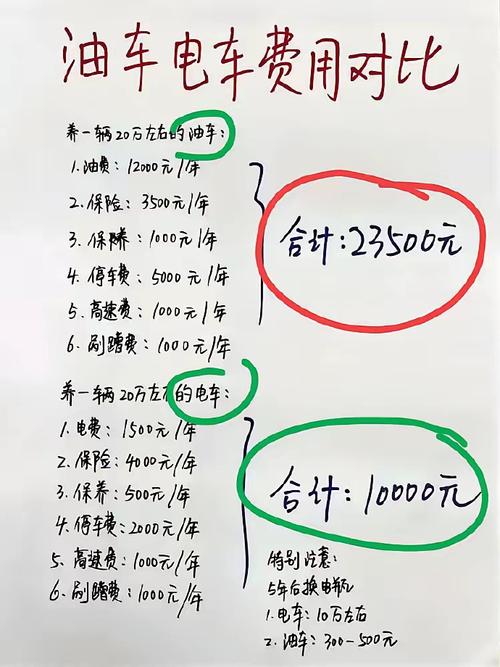 油车电车费用对比
养一辆20万左右的油车:
1.油费: 12000元/年
2.保险: 3500元/年
3.保养: 1000元/年
4.停车费: 5000元/年
5.高速费: 1000元/年
6.刷蹭费: 1000元/年
合计:23500元
养一辆20万左右的电车:
1.电费: 1500元/年
2.保险: 4000元/年
3.保养: 500元/年
4.停车费: 2000元/年
5.高速费: 1000元/年
6.刷蹭费: 1000元/年
合计: 10000元
特别注意:
5年后换电瓶
1.电车: 10万左右
2.油车: 300-500元